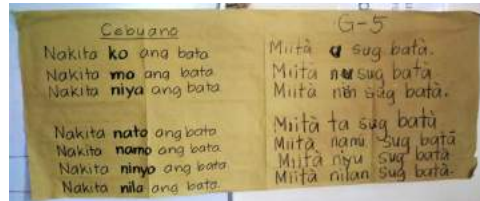 Cebuano
Nakita ko ang bata
Nakita mo ang bata
Nakita niya ang bata
Nakita nato ang bata
Nakita namo ang bata
Nakita ninyo ang bata
Nakita nila ang bata.
G-5
Miità sug batà.
Miità sug batà
Miità sug batà.
Miità ta sug batà
Miità nami sug batà
Miità niyu sug batà
Miità nilan sug batà.